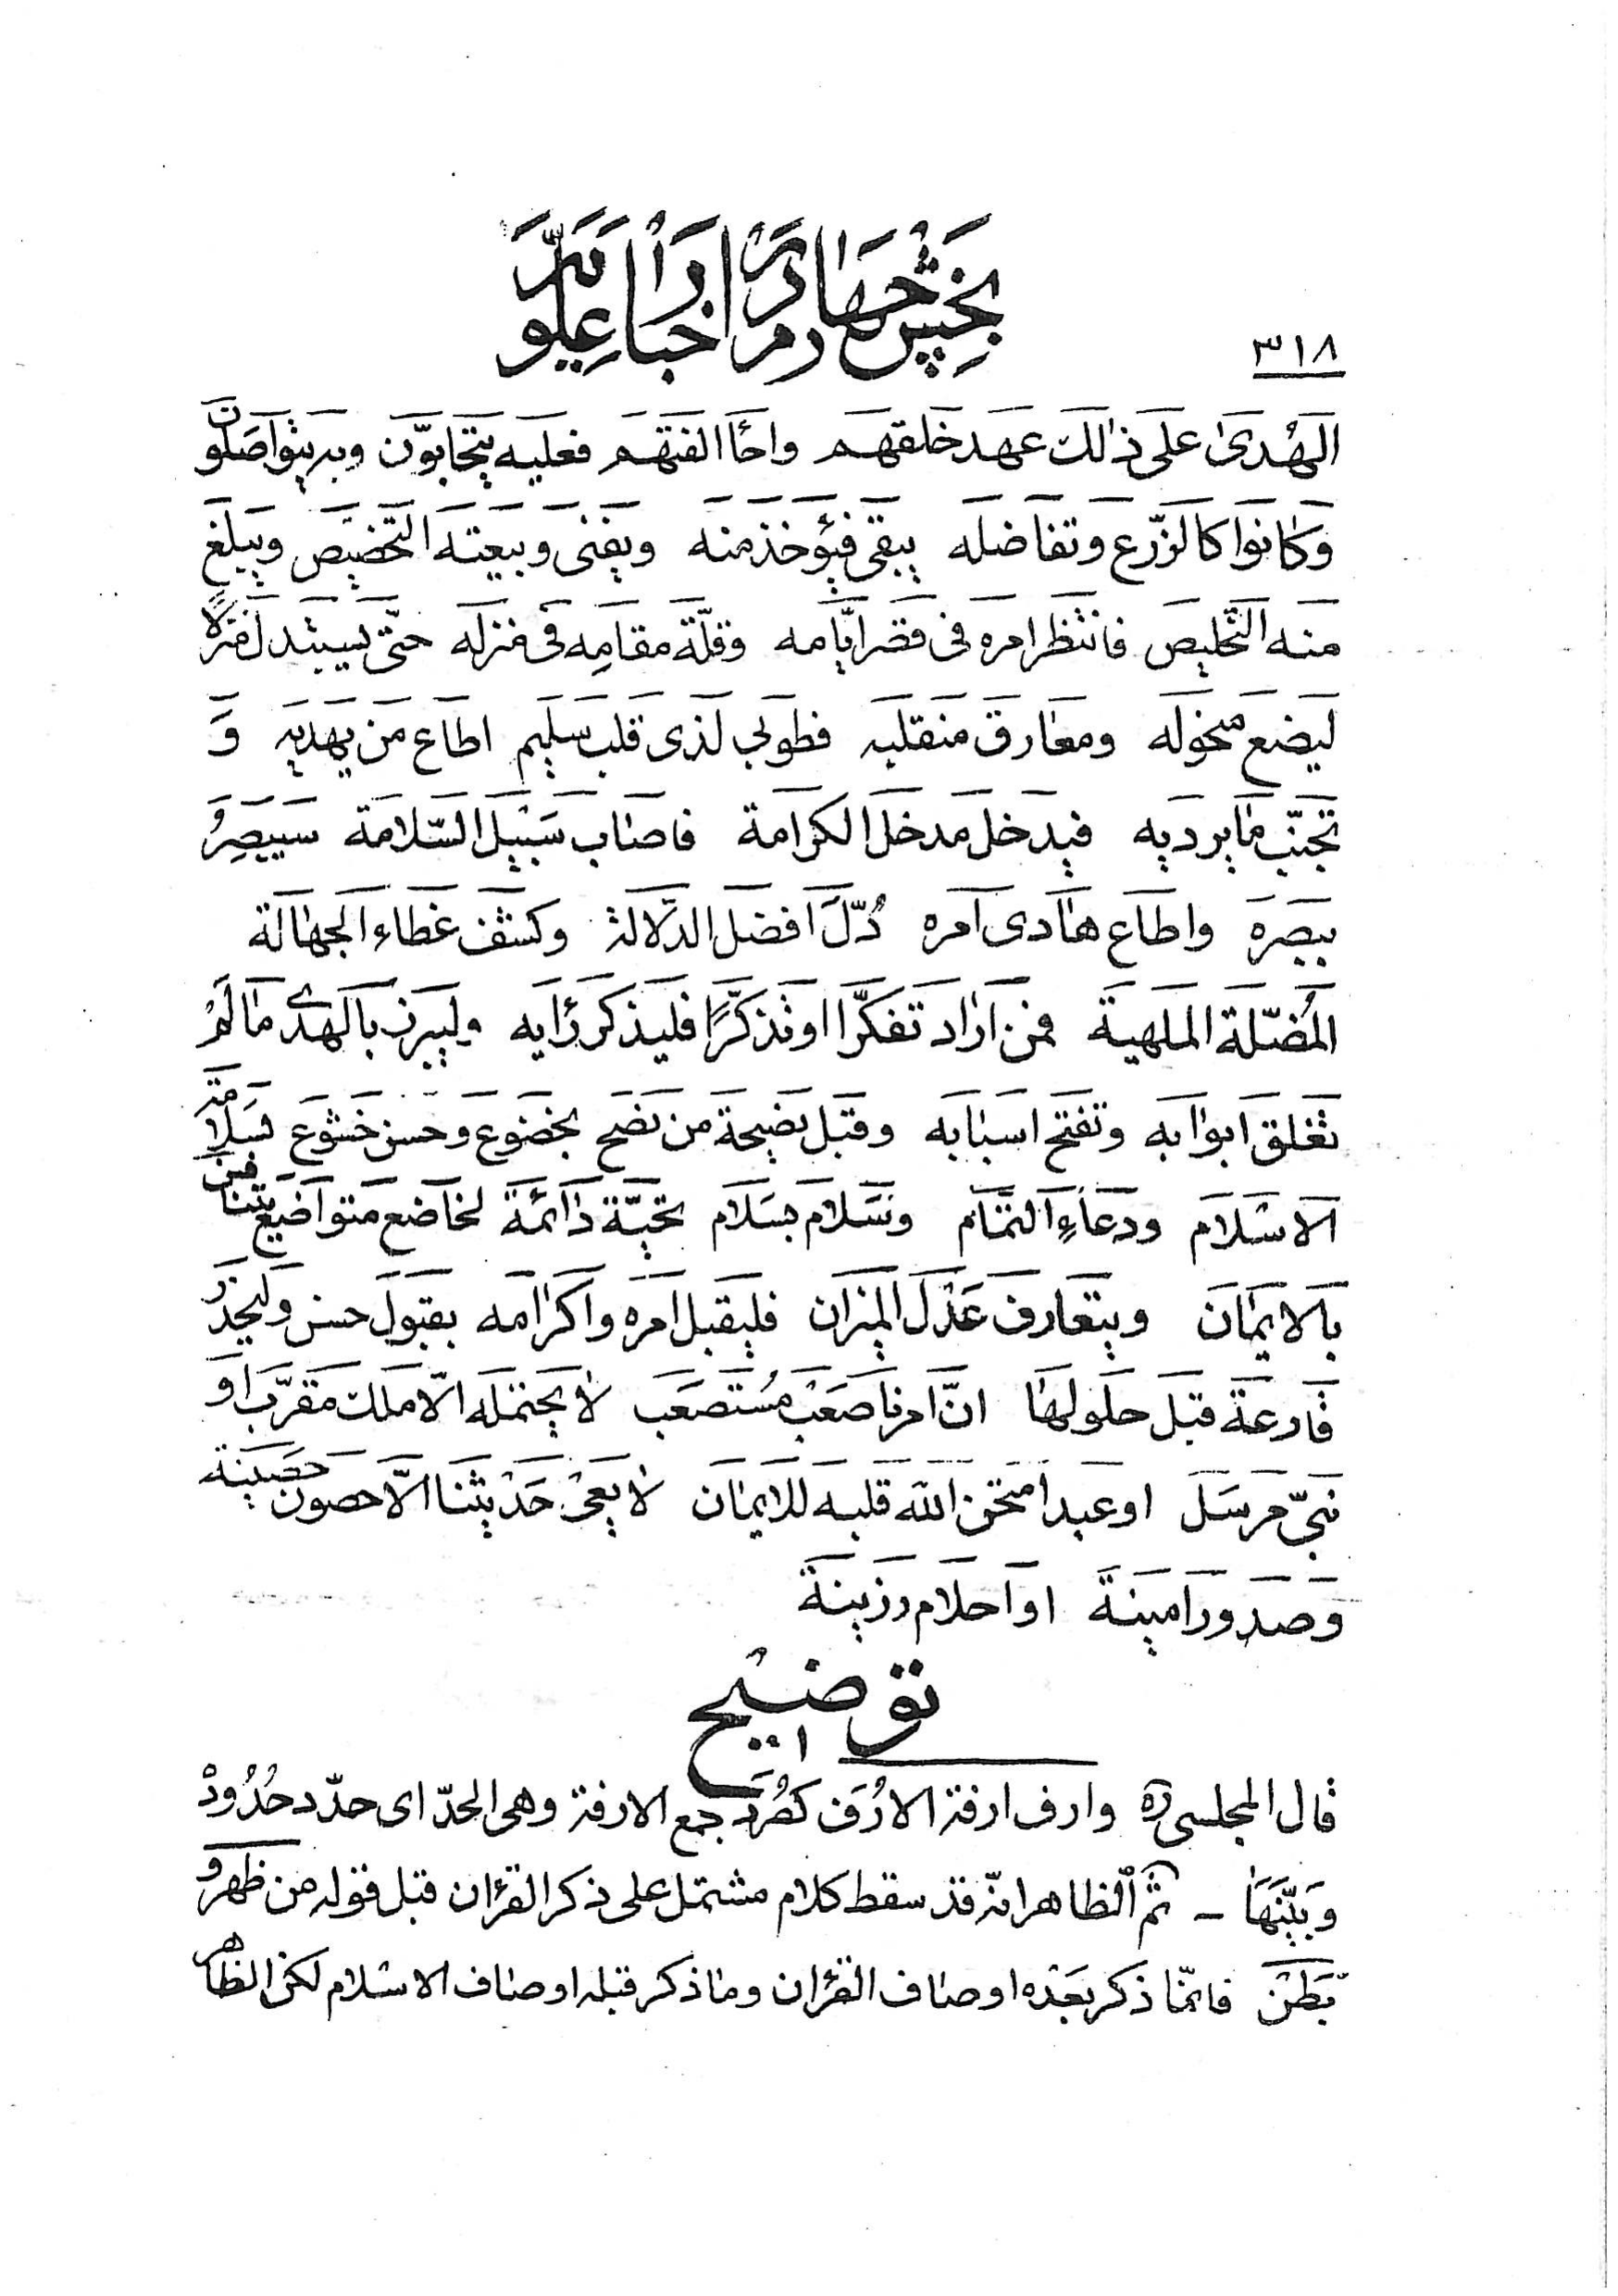 بخش چهارم در اخبار علویه
٣١٨
الهُدىٰ على ذٰلك عهد خلقهم واخا الفتهم فعليه يتحابوّن وبه يتواصلون
وكانوا كالزّرع وتفاضله يبقى فيؤخذ منه ويفنى وبيعته التخضيص ويبلغ
منه التخليص فانتظر امره فى قصر ايّامه وقلّة مقامه فى منزله حتّى يستبدل منزلًا
ليضع منحوله ومعارق منقلبه فطوبى لذى قلب سليم اطاع من يهديه و
تجنّب ما يرديه فيدخل مدخل الكرامة فاصاب سبيل السّلامة سيبصر
ببصره واطاع هادى امره دُلّ افضل الدّلالة وكشف غطاء الجهالة
المُضلّة الملهية فمن اراد تفكّرا او تذكّرًا فليذكر رأيه وليبرز بالهدى ما لم
تغلق ابوابه وتفتح اسبابه وقبل نصيحة من نصح بخضوع وحسن خشوع بسلامة
الاسلام ودعاء التمام وسلام بسلام تحيّة دائمة لخاضع متواضع يتنافس
بالايمان ويتعارف عدل الميزان فليقبل امره واكرامه بقبول حسن وليحذر
قارعة قبل حلولها انّ امرنا صعب مُستصعب لا يحتمله الّا ملك مقرّب او
نبىّ مرسل او عبد امتحن الله قلبه للايمان لا يعى حديثنا الّا حصون حصينة
وصدور امينة او احلام رزينة
توضيح
قال المجلسى ره وارف ارفة الارُف كصُرَد جمع الارفة وهى الحدّ اى حدّد حُدُودْ
وبيّنها - ثم الظاهر انّه قد سقط كلام مشتمل على ذكر القرءان قبل قوله من ظهر و
بطن فانّما ذكر بعده اوصاف القرءان وما ذكر قبله اوصاف الاسلام لكن الظاهر